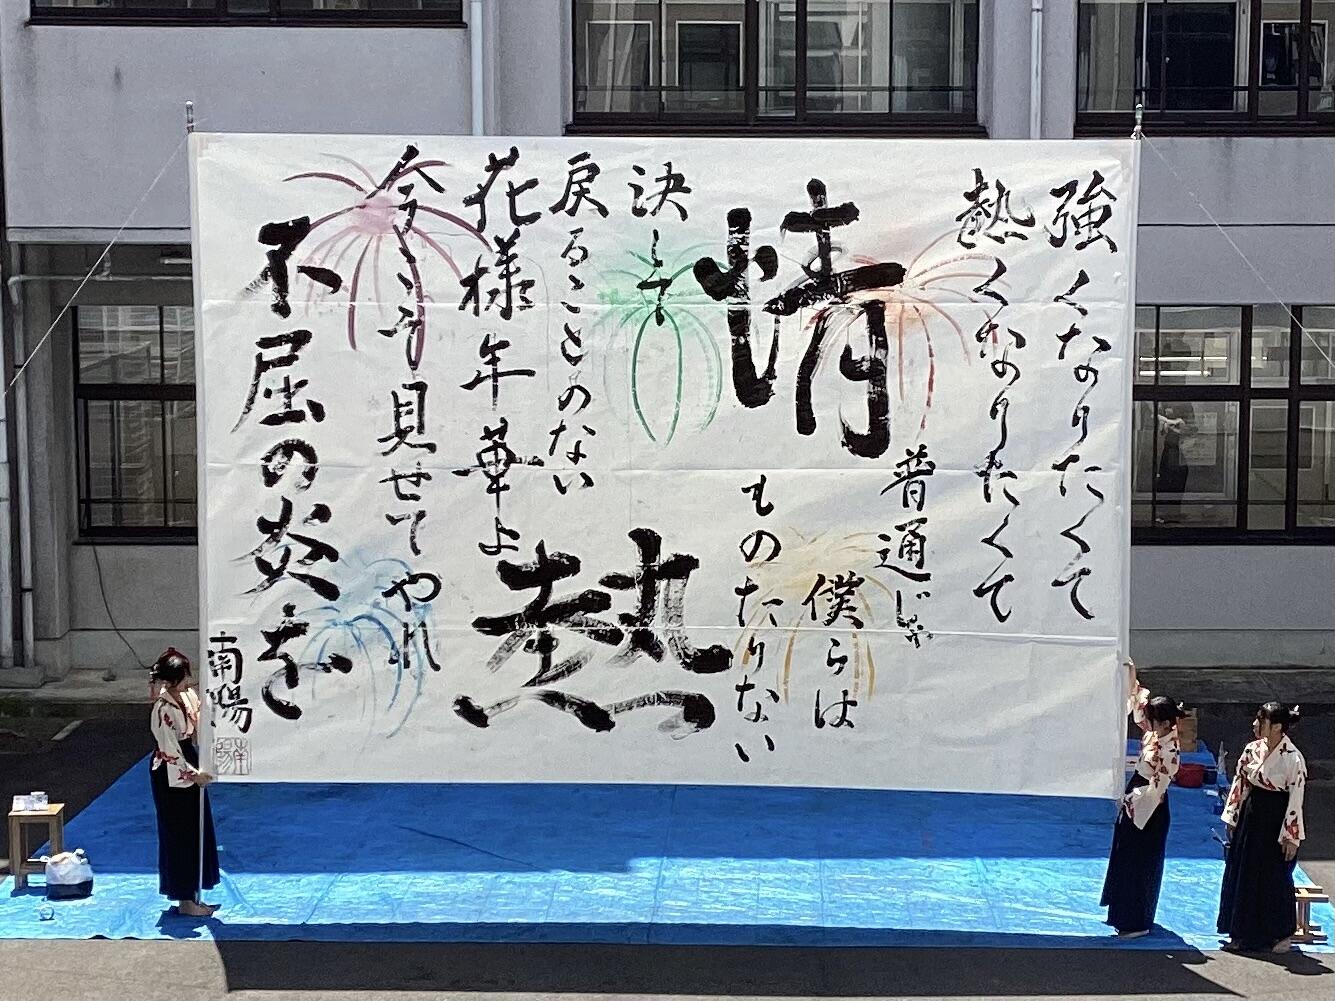 強くなりたくて
熱くなりたくて
普通じゃ
僕らは
ものたりない
情
熱
決して
戻ることのない
花様年華よ
今こそ見せてやれ
不屈の炎を
南陽
南陽